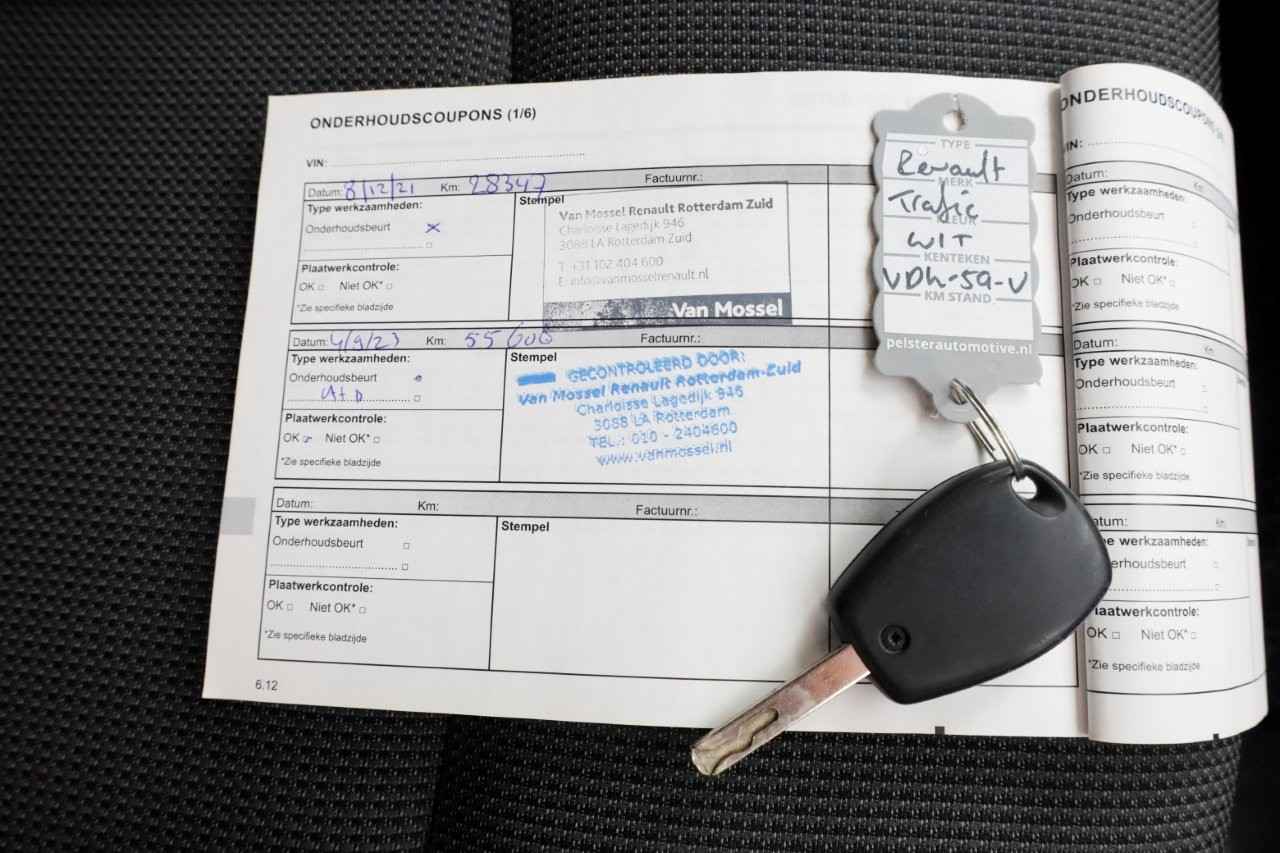 ONDERHOUDSCOUPONS (1/6)
VIN:
Datum: 8/12/21 Km: 28347 Factuurnr.:
Type werkzaamheden:
Onderhoudsbeurt x
Plaatwerkcontrole:
OK □ Niet OK* □
*Zie specifieke bladzijde
Stempel
Van Mossel Renault Rotterdam Zuid
Charloisse Lagedijk 946
3088 LA Rotterdam-Zuid
T: +31 102 404 600
E: info@vanmosselrenault.nl
Van Mossel
Datum: 4/9/23 Km: 55608 Factuurnr.:
Type werkzaamheden:
Onderhoudsbeurt
A+D
Plaatwerkcontrole:
OK Niet OK* □
*Zie specifieke bladzijde
Stempel
GECONTROLEERD DOOR:
Van Mossel Renault Rotterdam-Zuid
Charloisse Lagedijk 946
3088 LA Rotterdam
TEL.: 010 - 2404600
www.vanmossel.nl
Datum: Km: Factuurnr.:
Type werkzaamheden:
Onderhoudsbeurt □
Plaatwerkcontrole:
OK □ Niet OK* □
*Zie specifieke bladzijde
Stempel
6.12
TYPE
Renault
MERK
Trafic
KLEUR
WIT
KENTEKEN
VDH-59-V
KM STAND
pelsterautomotive.nl
ONDERHOUDSCOUPONS
VIN:
Datum: Km
Type werkzaamheden:
Onderhoudsbeurt □
Plaatwerkcontrole:
OK □ Niet OK* □
*Zie specifieke bladzijde
Datum: Km
Type werkzaamheden:
Onderhoudsbeurt □
Plaatwerkcontrole:
OK □ Niet OK* □
*Zie specifieke bladzijde
Datum: Km
werkzaamheden:
Onderhoudsbeurt □
Plaatwerkcontrole:
OK □ Niet OK* □
*Zie specifieke bladzijde